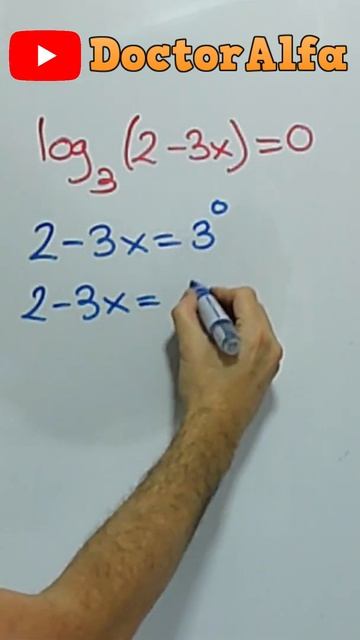 DoctorAlfa
log₃(2-3x)=0
2-3x=3⁰
2-3x=